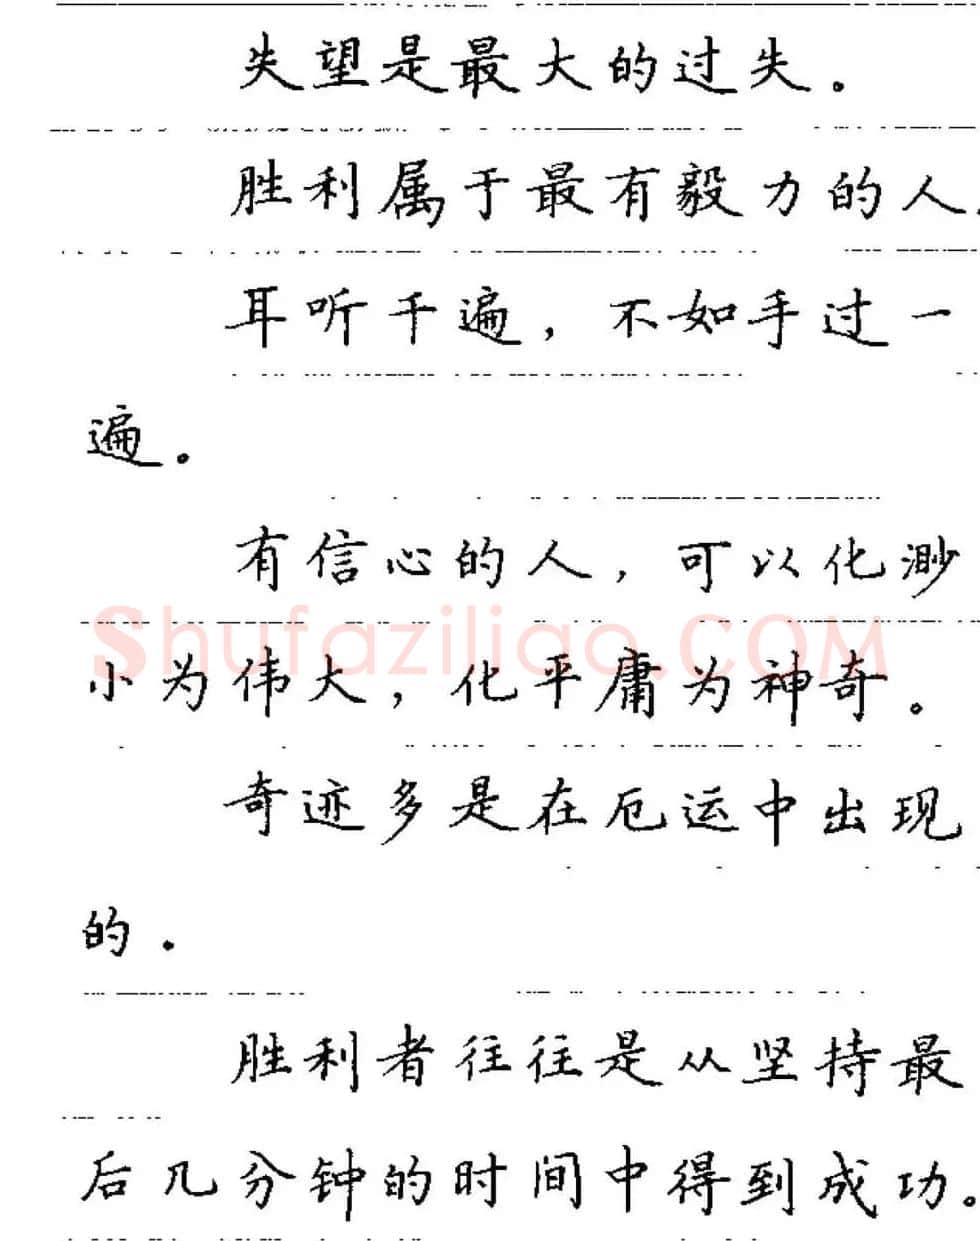 失望是最大的过失。
胜利属于最有毅力的人.
耳听千遍，不如手过一
遍。
有信心的人，可以化渺
Shufaziliao.COM
小为伟大，化平庸为神奇。
奇迹多是在厄运中出现
的.
胜利者往往是从坚持最
后几分钟的时间中得到成功。